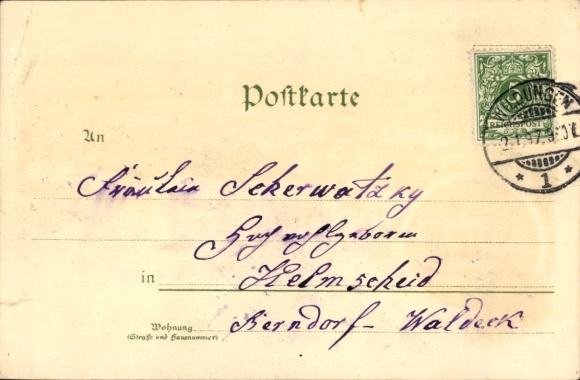 Postkarte
5
REICHSPOST
WILDUNGEN
* 1 *
An
Fräulein Sekerwatzky
Hochwohlgeboren
in Helmscheid
Wohnung
(Straße und Hausnummer)
Berndorf - Waldeck